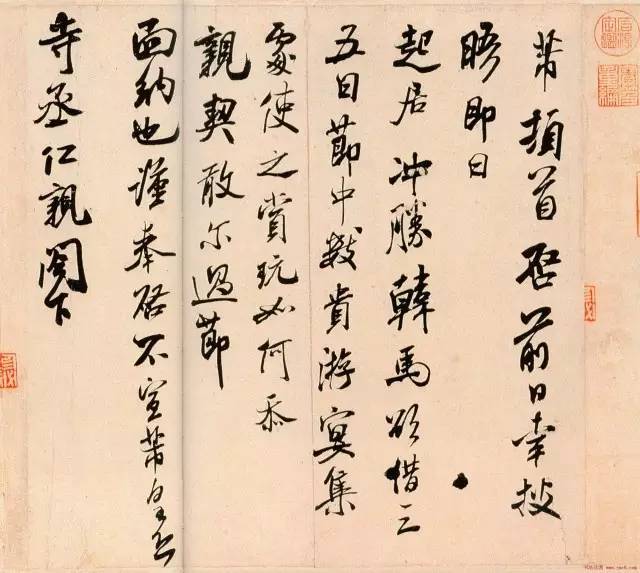 芾頓首启前日幸披
晤即日
起居冲勝韓馬欲借三
五日節中数貴游宴集
處使之賞玩如何忝
親契敢尔過節
面納也謹奉啓不宣芾皇恐
寺丞仁親閣下